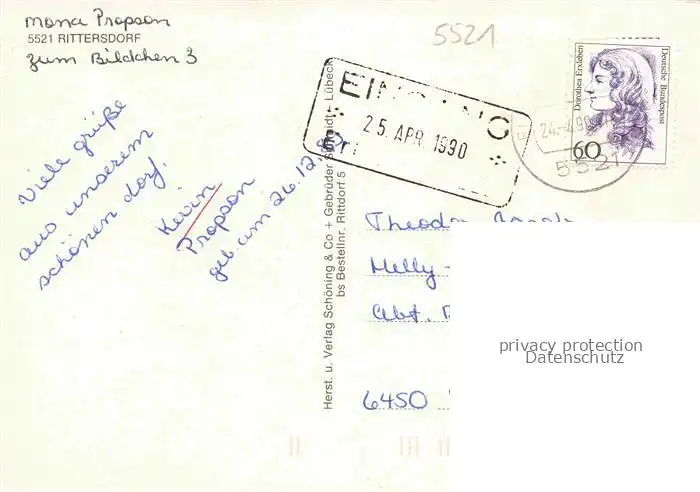 Mona Propson
5521 RITTERSDORF
zum Bildchen 3
5521
EINGANG
25. APR. 1990
Dorothea Erxleben
Deutsche Bundespost
60
24.-4.90
5521
Viele grüße
aus unserem
schönen dorf.
Kevin
Propson
geb am 26.12.
Herst. u. Verlag Schöning & Co + Gebrüder Schmidt - Lübeck
bs Bestellnr. Rittdorf 5
Theodor
Melly-
Abt.
6450
privacy protection
Datenschutz